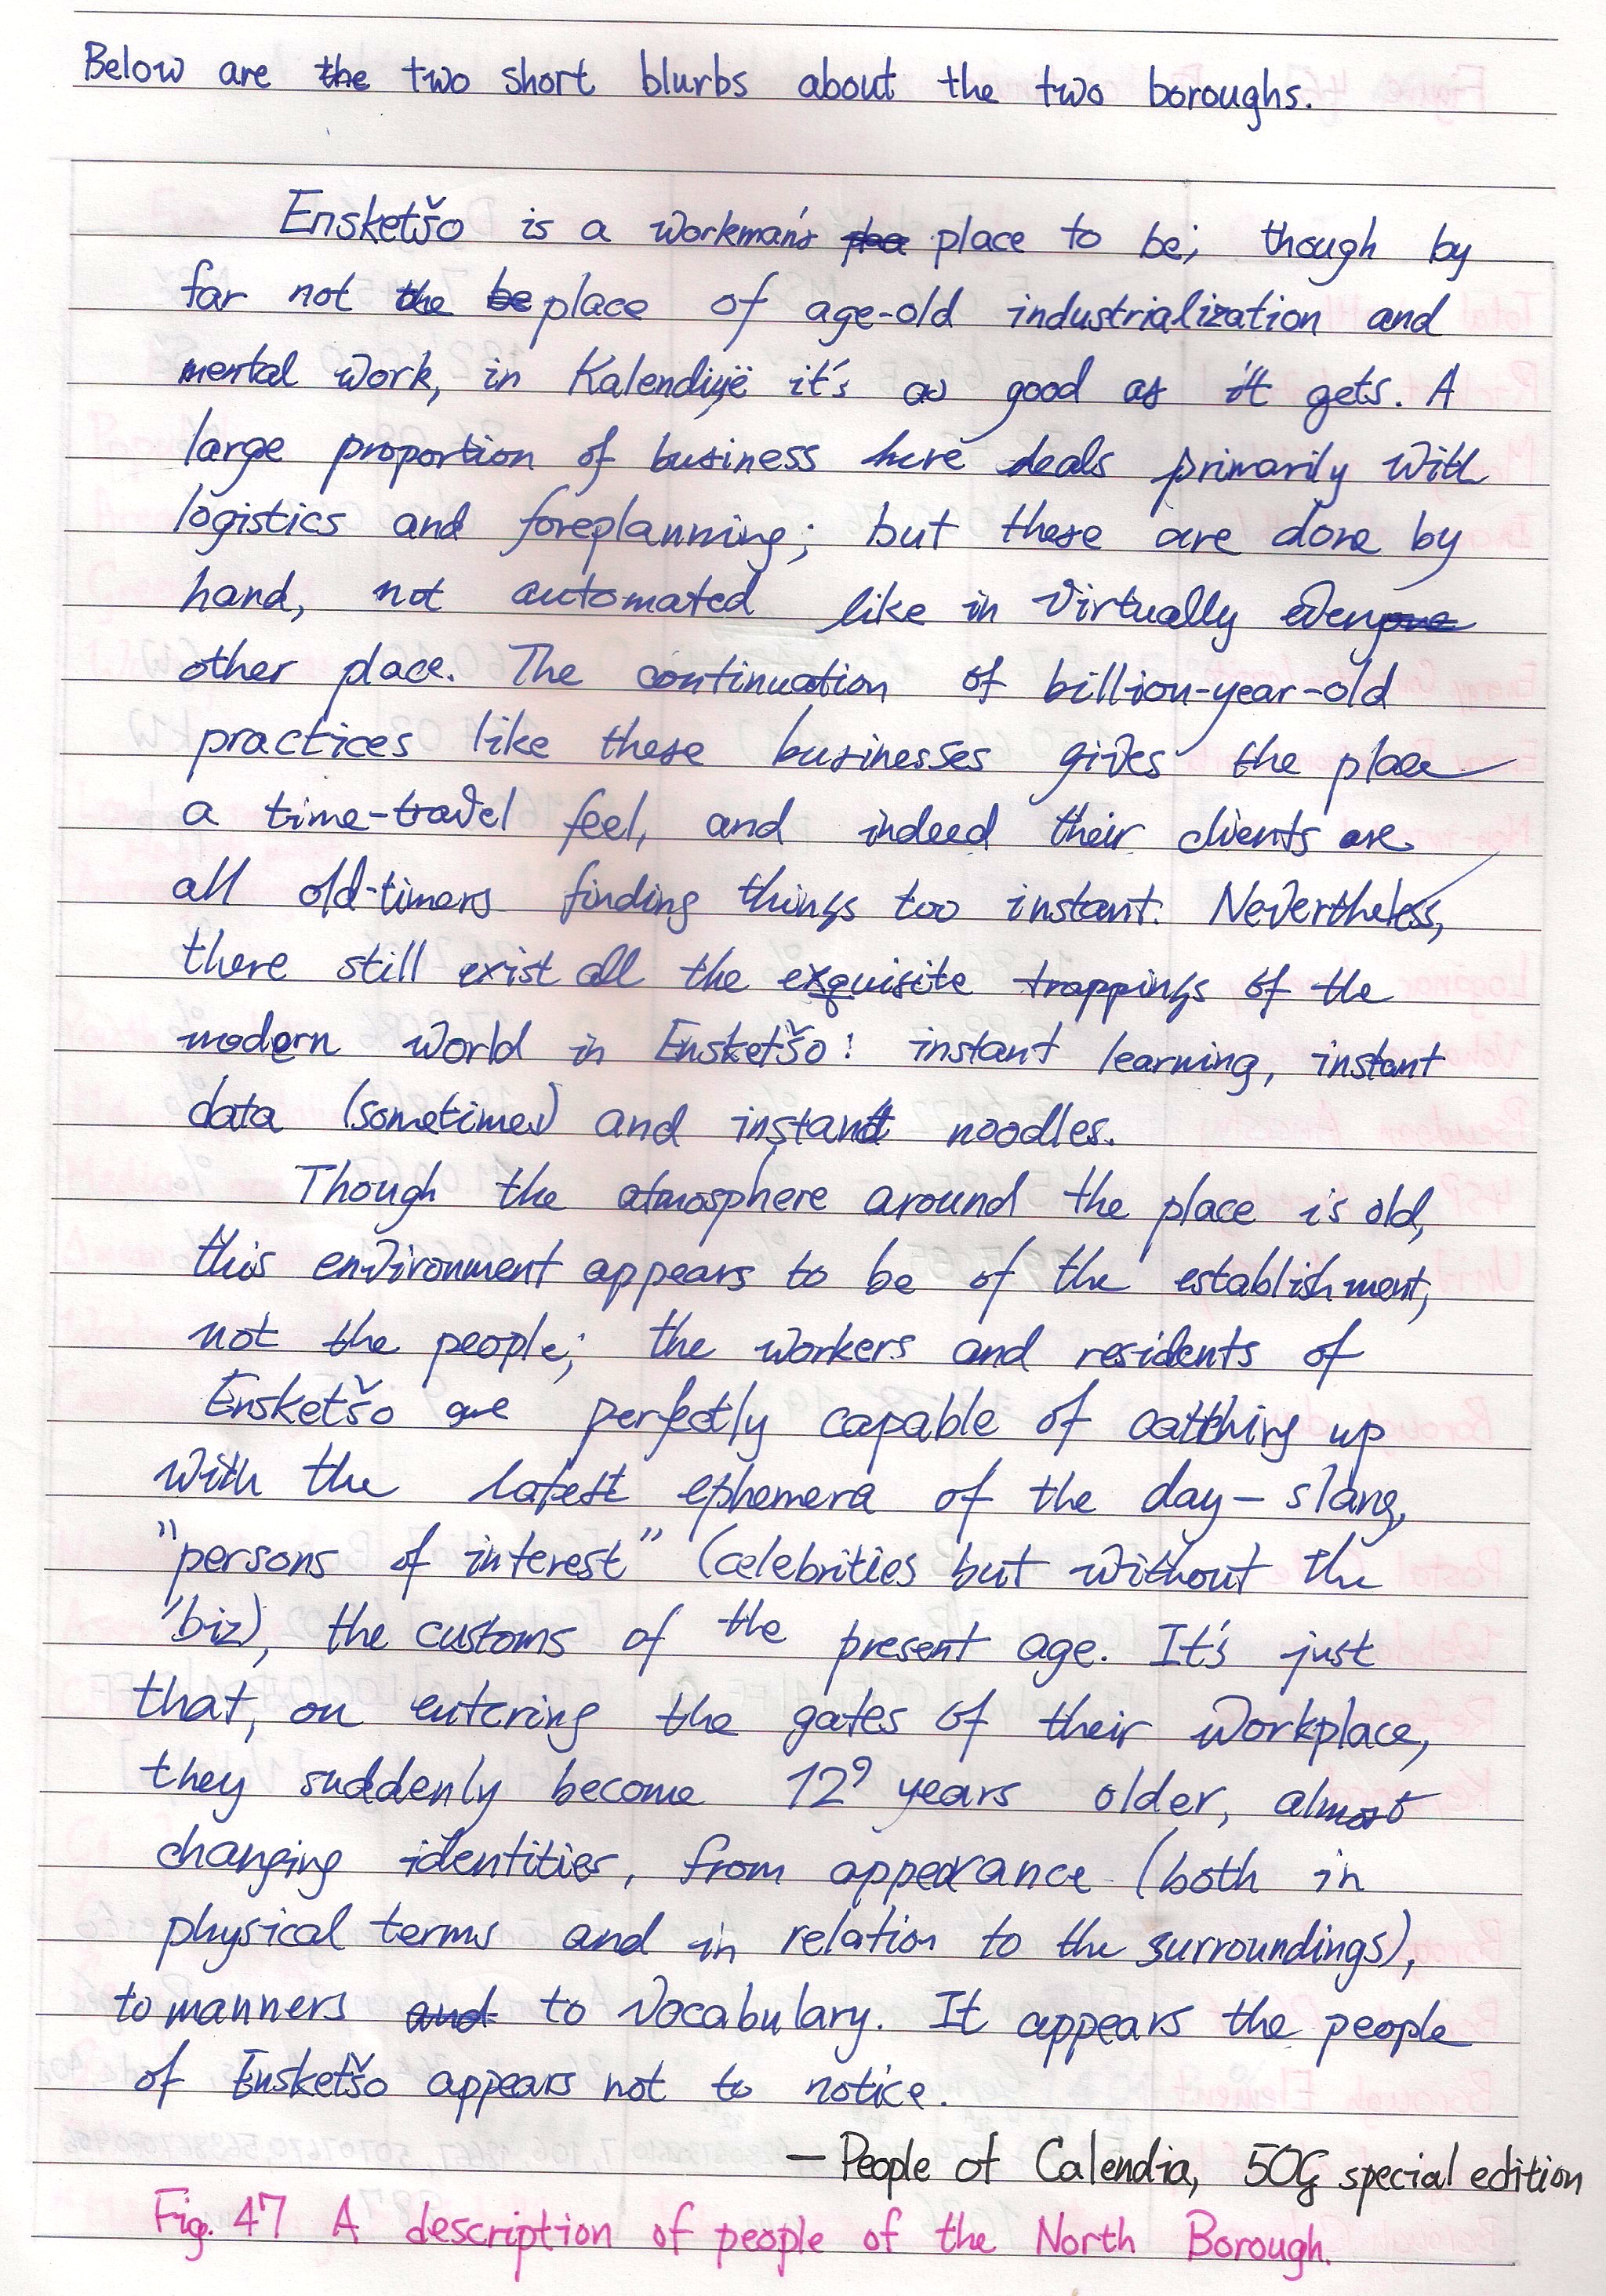 Below are the two short blurbs about the two boroughs.
Ensketšo is a workman's pla place to be; though by
far not the be place of age-old industrialization and
mental work, in Kalendiyë it's as good as it gets. A
large proportion of business here deals primarily with
logistics and foreplanning; but these are done by
hand, not automated like in virtually everyone
other place. The continuation of billion-year-old
practices like these businesses gives the place
a time-travel feel, and indeed their clients are
all old-timers finding things too instant. Nevertheless,
there still exist all the exquisite trappings of the
modern world in Ensketšo: instant learning, instant
data (sometimes) and instant noodles.
Though the atmosphere around the place is old,
this environment appears to be of the establishment,
not the people; the workers and residents of
Ensketšo are perfectly capable of catching up
with the latest ephemera of the day – slang,
"persons of interest" (celebrities but without the
'biz), the customs of the present age. It's just
that, on entering the gates of their workplace,
they suddenly become 12⁹ years older, almost
changing identities, from appearance (both in
physical terms and in relation to the surroundings),
to manners and to vocabulary. It appears the people
of Ensketšo appears not to notice.
— People of Calendia, special edition
Fig. 47 A description of people of the North Borough.